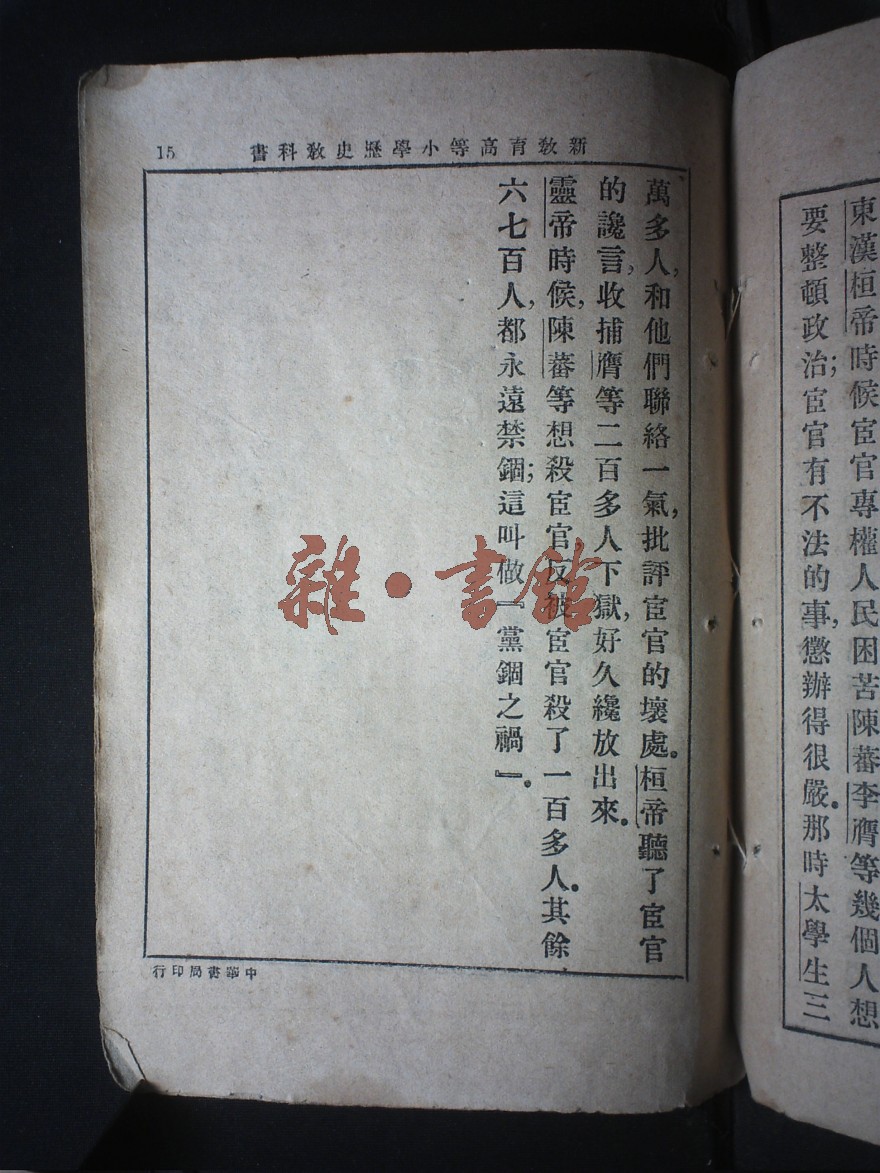 東漢桓帝時候宦官專權人民困苦陳蕃李膺等幾個人想
要整頓政治;宦官有不法的事,懲辦得很嚴。那時太學生三
新教育高等小學歷史教科書
15
萬多人,和他們聯絡一氣,批評宦官的壞處。桓帝聽了宦官
的讒言,收捕膺等二百多人下獄,好久纔放出來。
靈帝時候,陳蕃等想殺宦官反被宦官殺了一百多人。其餘
六七百人,都永遠禁錮;這叫做『黨錮之禍』。
中華書局印行
雜·書館